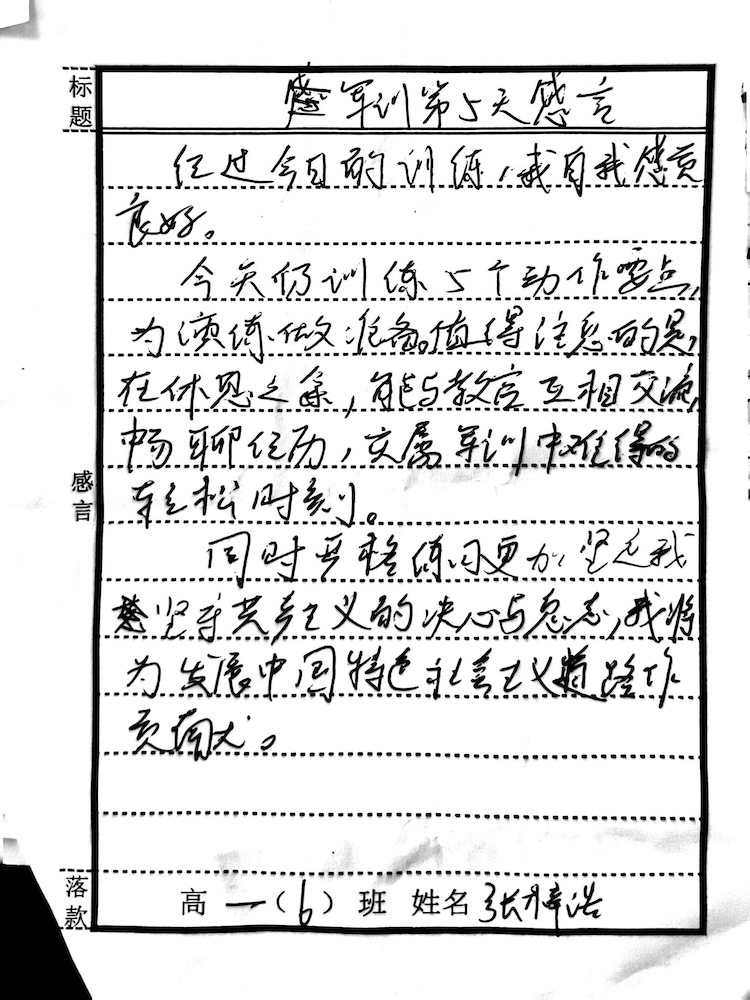 标题
军训第5天感言
经过今日的训练,我自我感觉
良好。
今天仍训练5个动作要点,
为演练做准备。值得注意的是,
在休息之余,能与教官互相交流,
畅聊经历,实属军训中难得的
轻松时刻。
感言
同时严格练习更加坚定我
坚守共产主义的决心与意志,我将
为发展中国特色社会主义道路作
贡献。
落款
高一(6)班 姓名 张梓浩